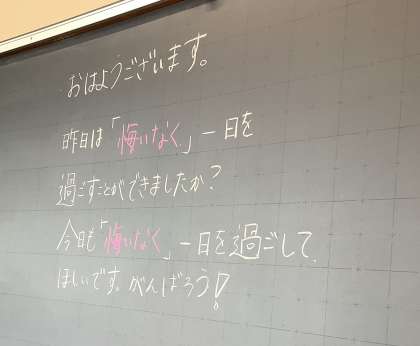 おはようございます。
昨日は「悔いなく」一日を
過ごすことができましたか?
今日も「悔いなく」一日を過ごして、
ほしいです。がんばろう!